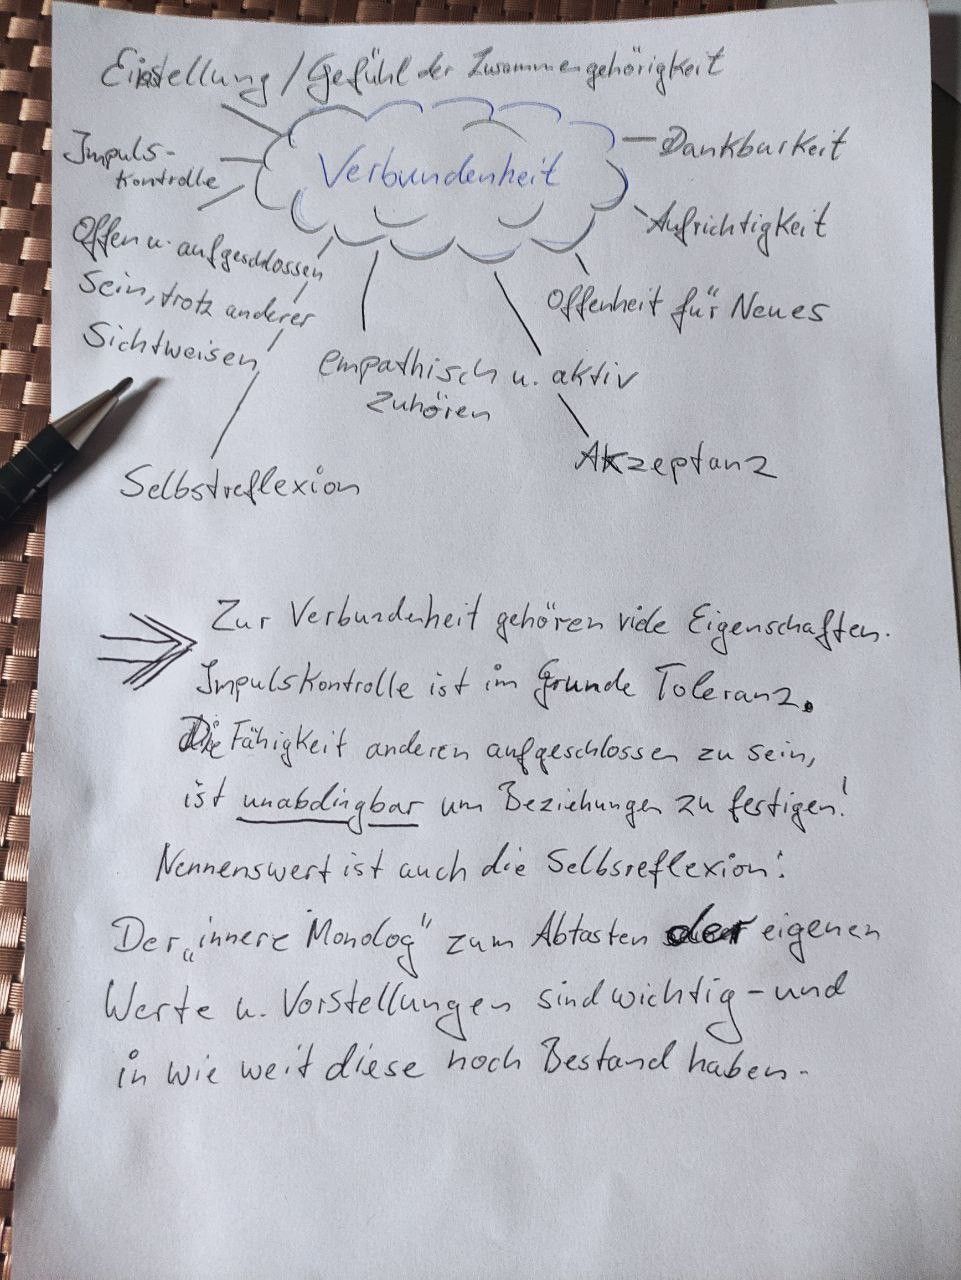 Einstellung / Gefühl der Zusammengehörigkeit
Verbundenheit
Impuls-
kontrolle
Offen u. aufgeschlossen
sein, trotz anderer
Sichtweisen
Selbstreflexion
empathisch u. aktiv
zuhören
Akzeptanz
Offenheit für Neues
Aufrichtigkeit
Dankbarkeit
Zur Verbundenheit gehören viele Eigenschaften.
Impulskontrolle ist im Grunde Toleranz.
Die Fähigkeit anderen aufgeschlossen zu sein,
ist unabdingbar um Beziehungen zu festigen!
Nennenswert ist auch die Selbsreflexion:
Der „innere Monolog" zum Abtasten der eigenen
Werte u. Vorstellungen sind wichtig - und
in wie weit diese noch Bestand haben.